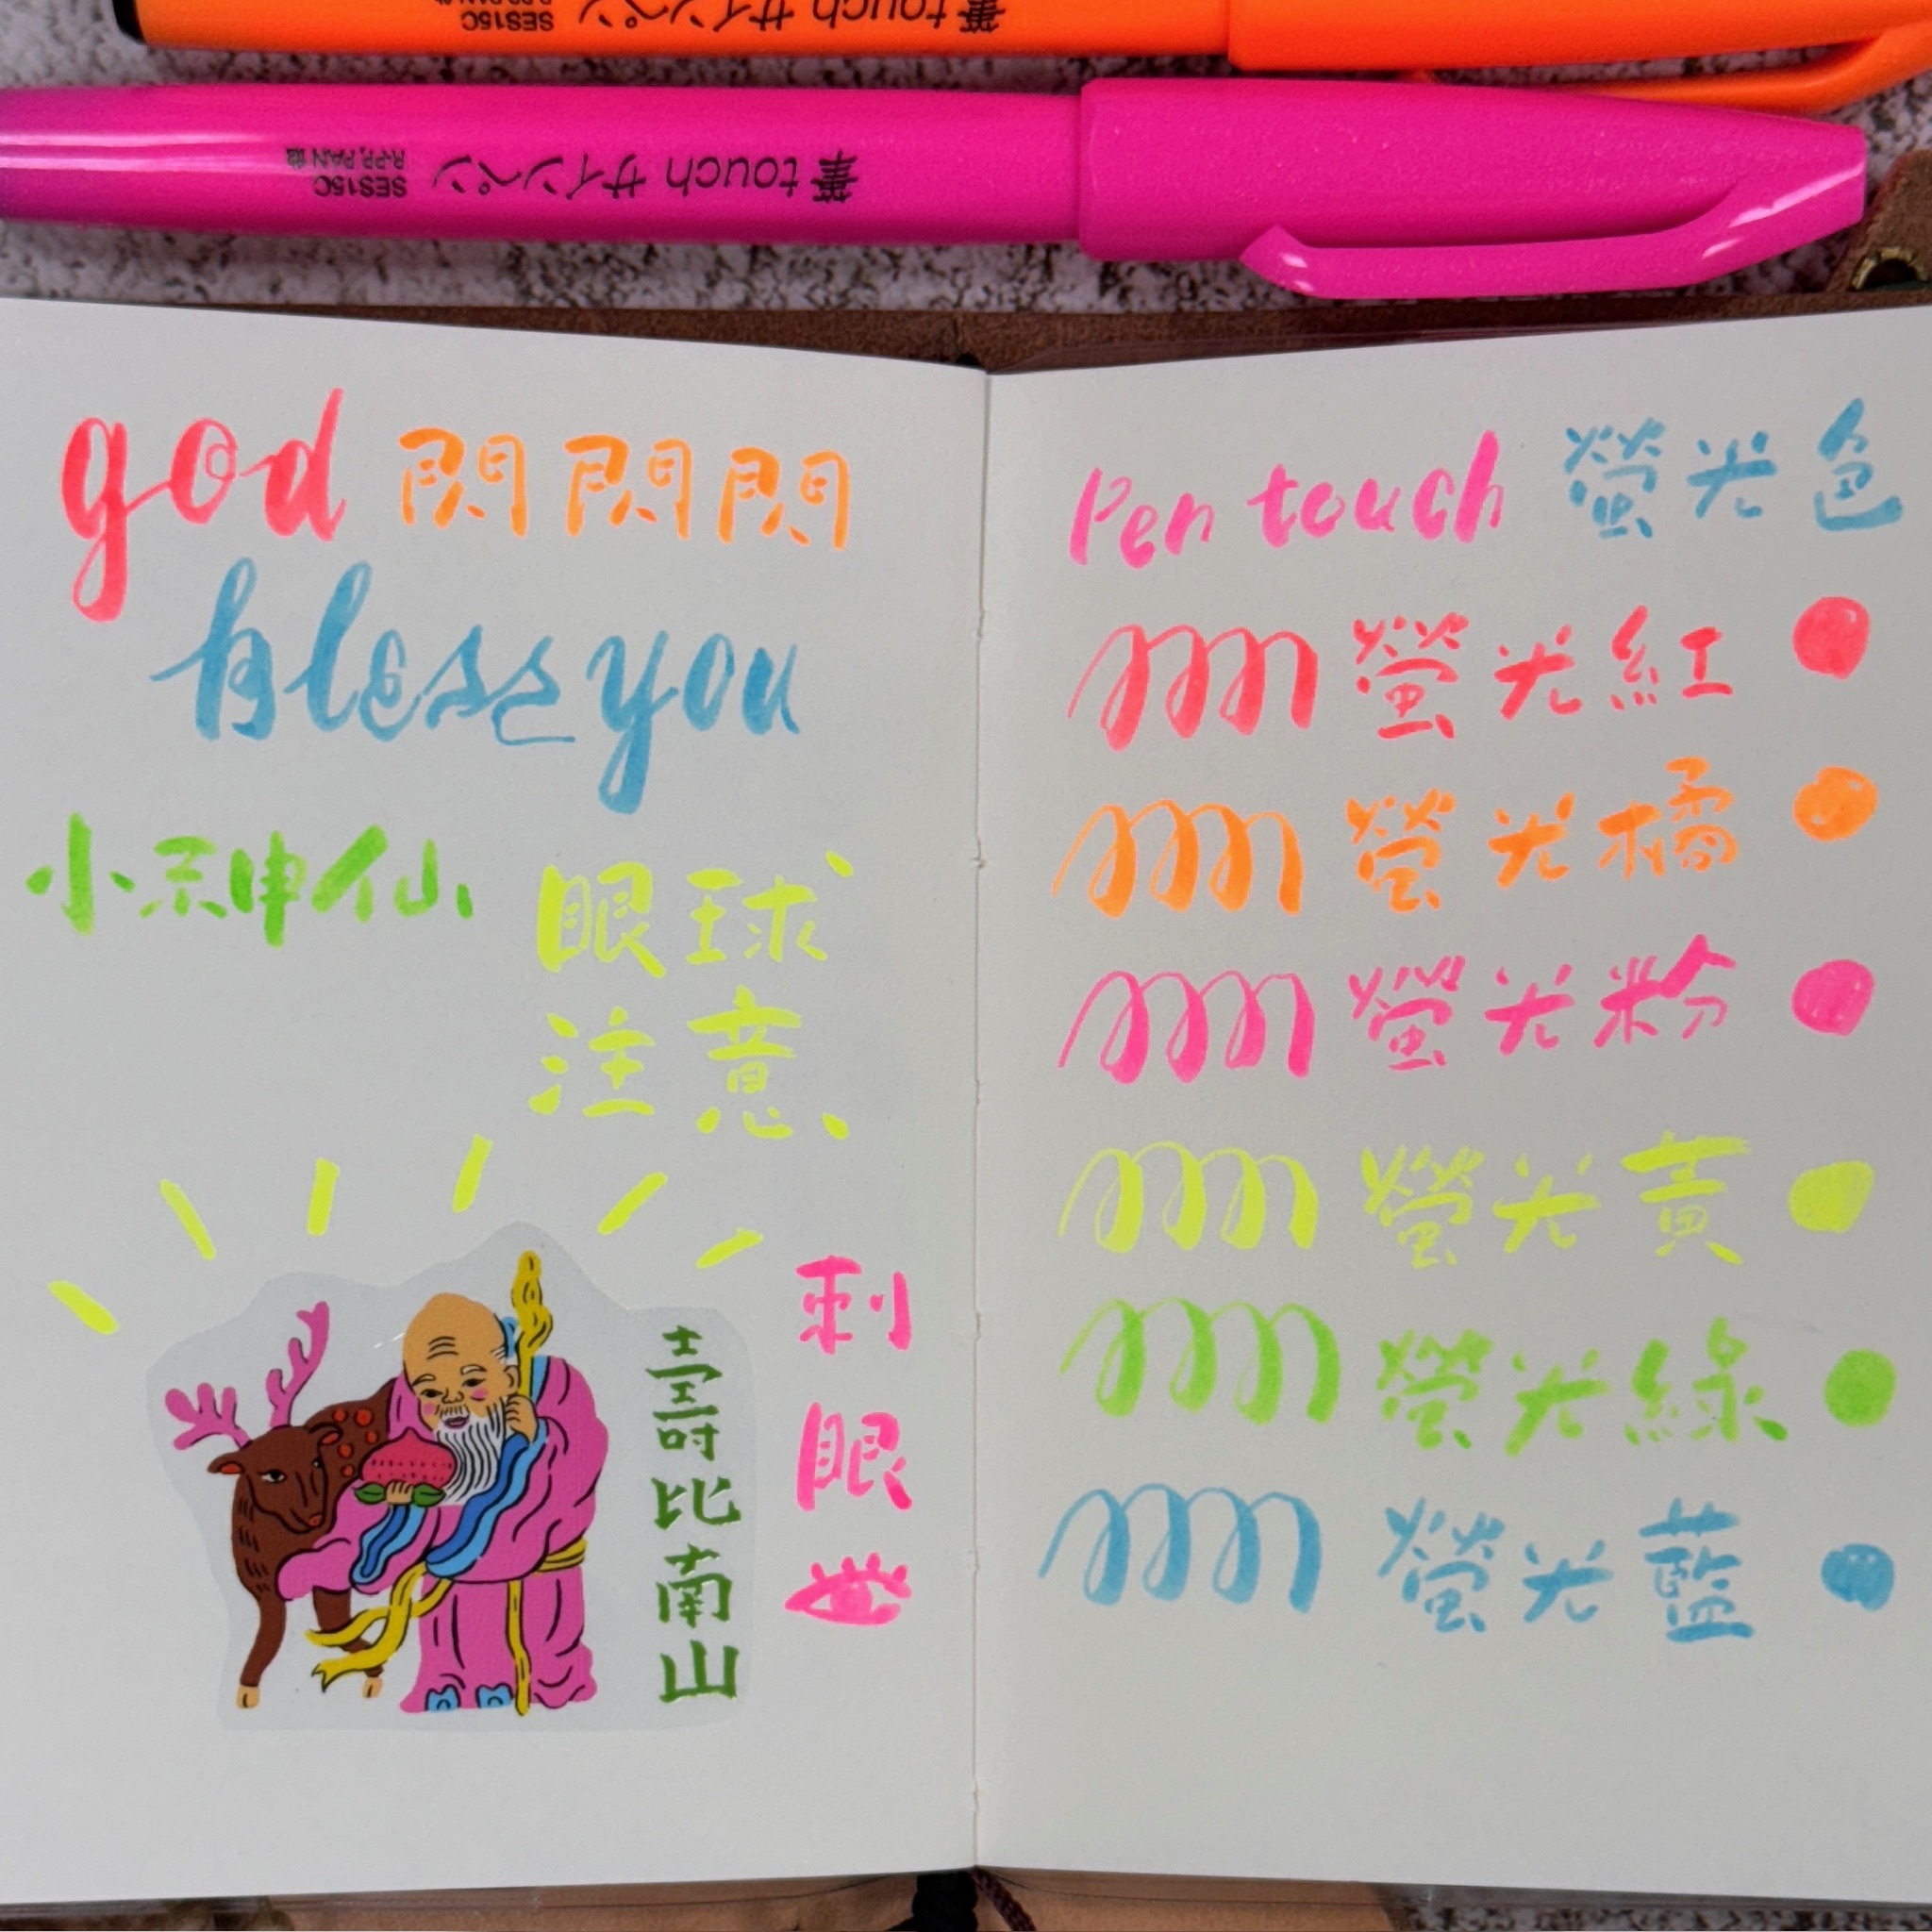 筆touch サインペン
SES15C
筆touch サインペン
SES15C
god 閃閃閃
bless you
小神仙
眼球
注意
刺
眼
壽比南山
Pen touch 螢光色
螢光紅
螢光橘
螢光粉
螢光黃
螢光綠
螢光藍